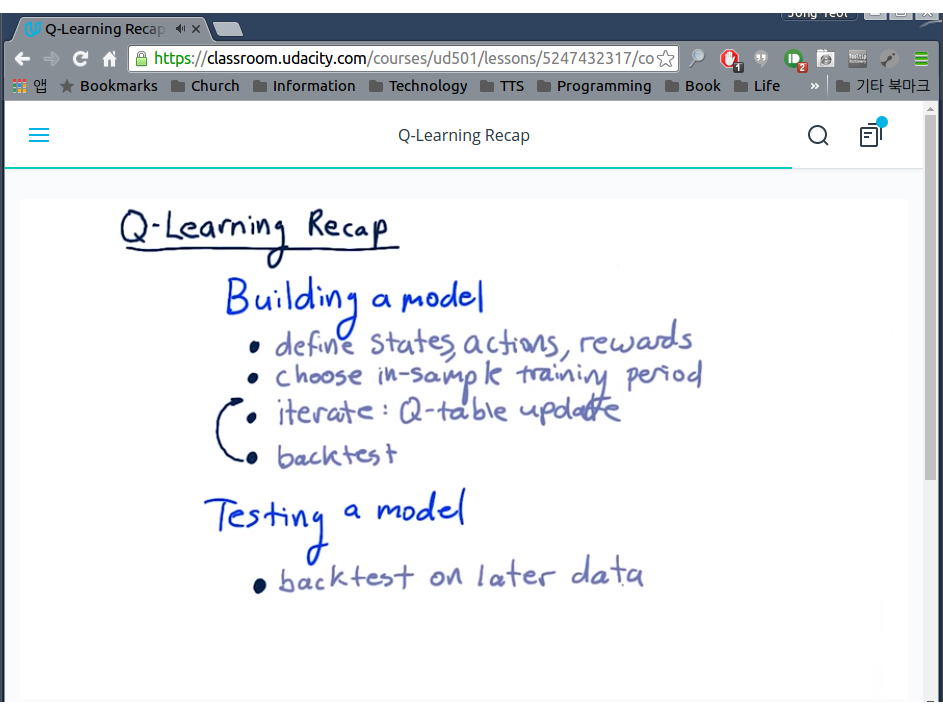 Jong Yeol
Q-Learning Recap
https://classroom.udacity.com/courses/ud501/lessons/5247432317/co
1
2
앱 Bookmarks Church Information Technology TTS Programming Book Life » 기타 북마크
Q-Learning Recap
Q-Learning Recap
Building a model
• define states, actions, rewards
• choose in-sample training period
• iterate: Q-table update
• backtest
Testing a model
• backtest on later data